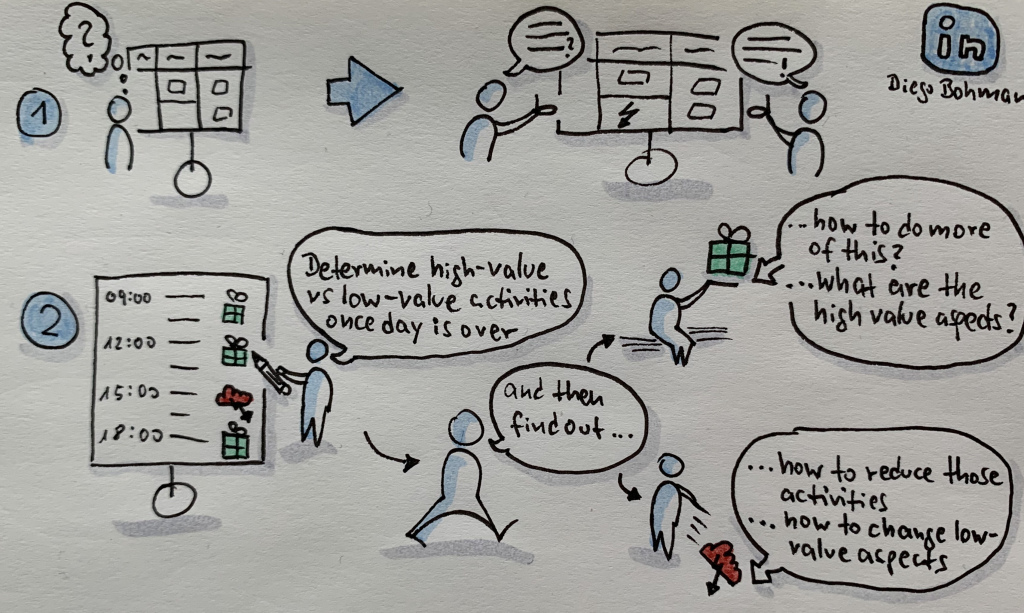 1
?
?
!
in
Diego Bohman
2
09:00
12:00
15:00
18:00
Determine high-value
vs low-value activities
once day is over
and then
find out ...
...how to do more
of this?
...what are the
high value aspects?
...how to reduce those
activities
...how to change low-
value aspects